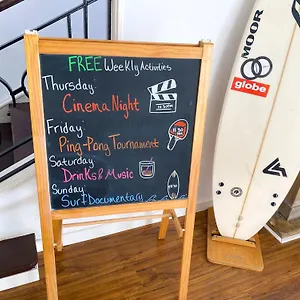 FREE Weekly Activities
Thursday:
Cinema Night
Friday:
Ping-Pong Tournament
Saturday:
Drinks & Music
Sunday:
Surf Documentary
MOOR
globe